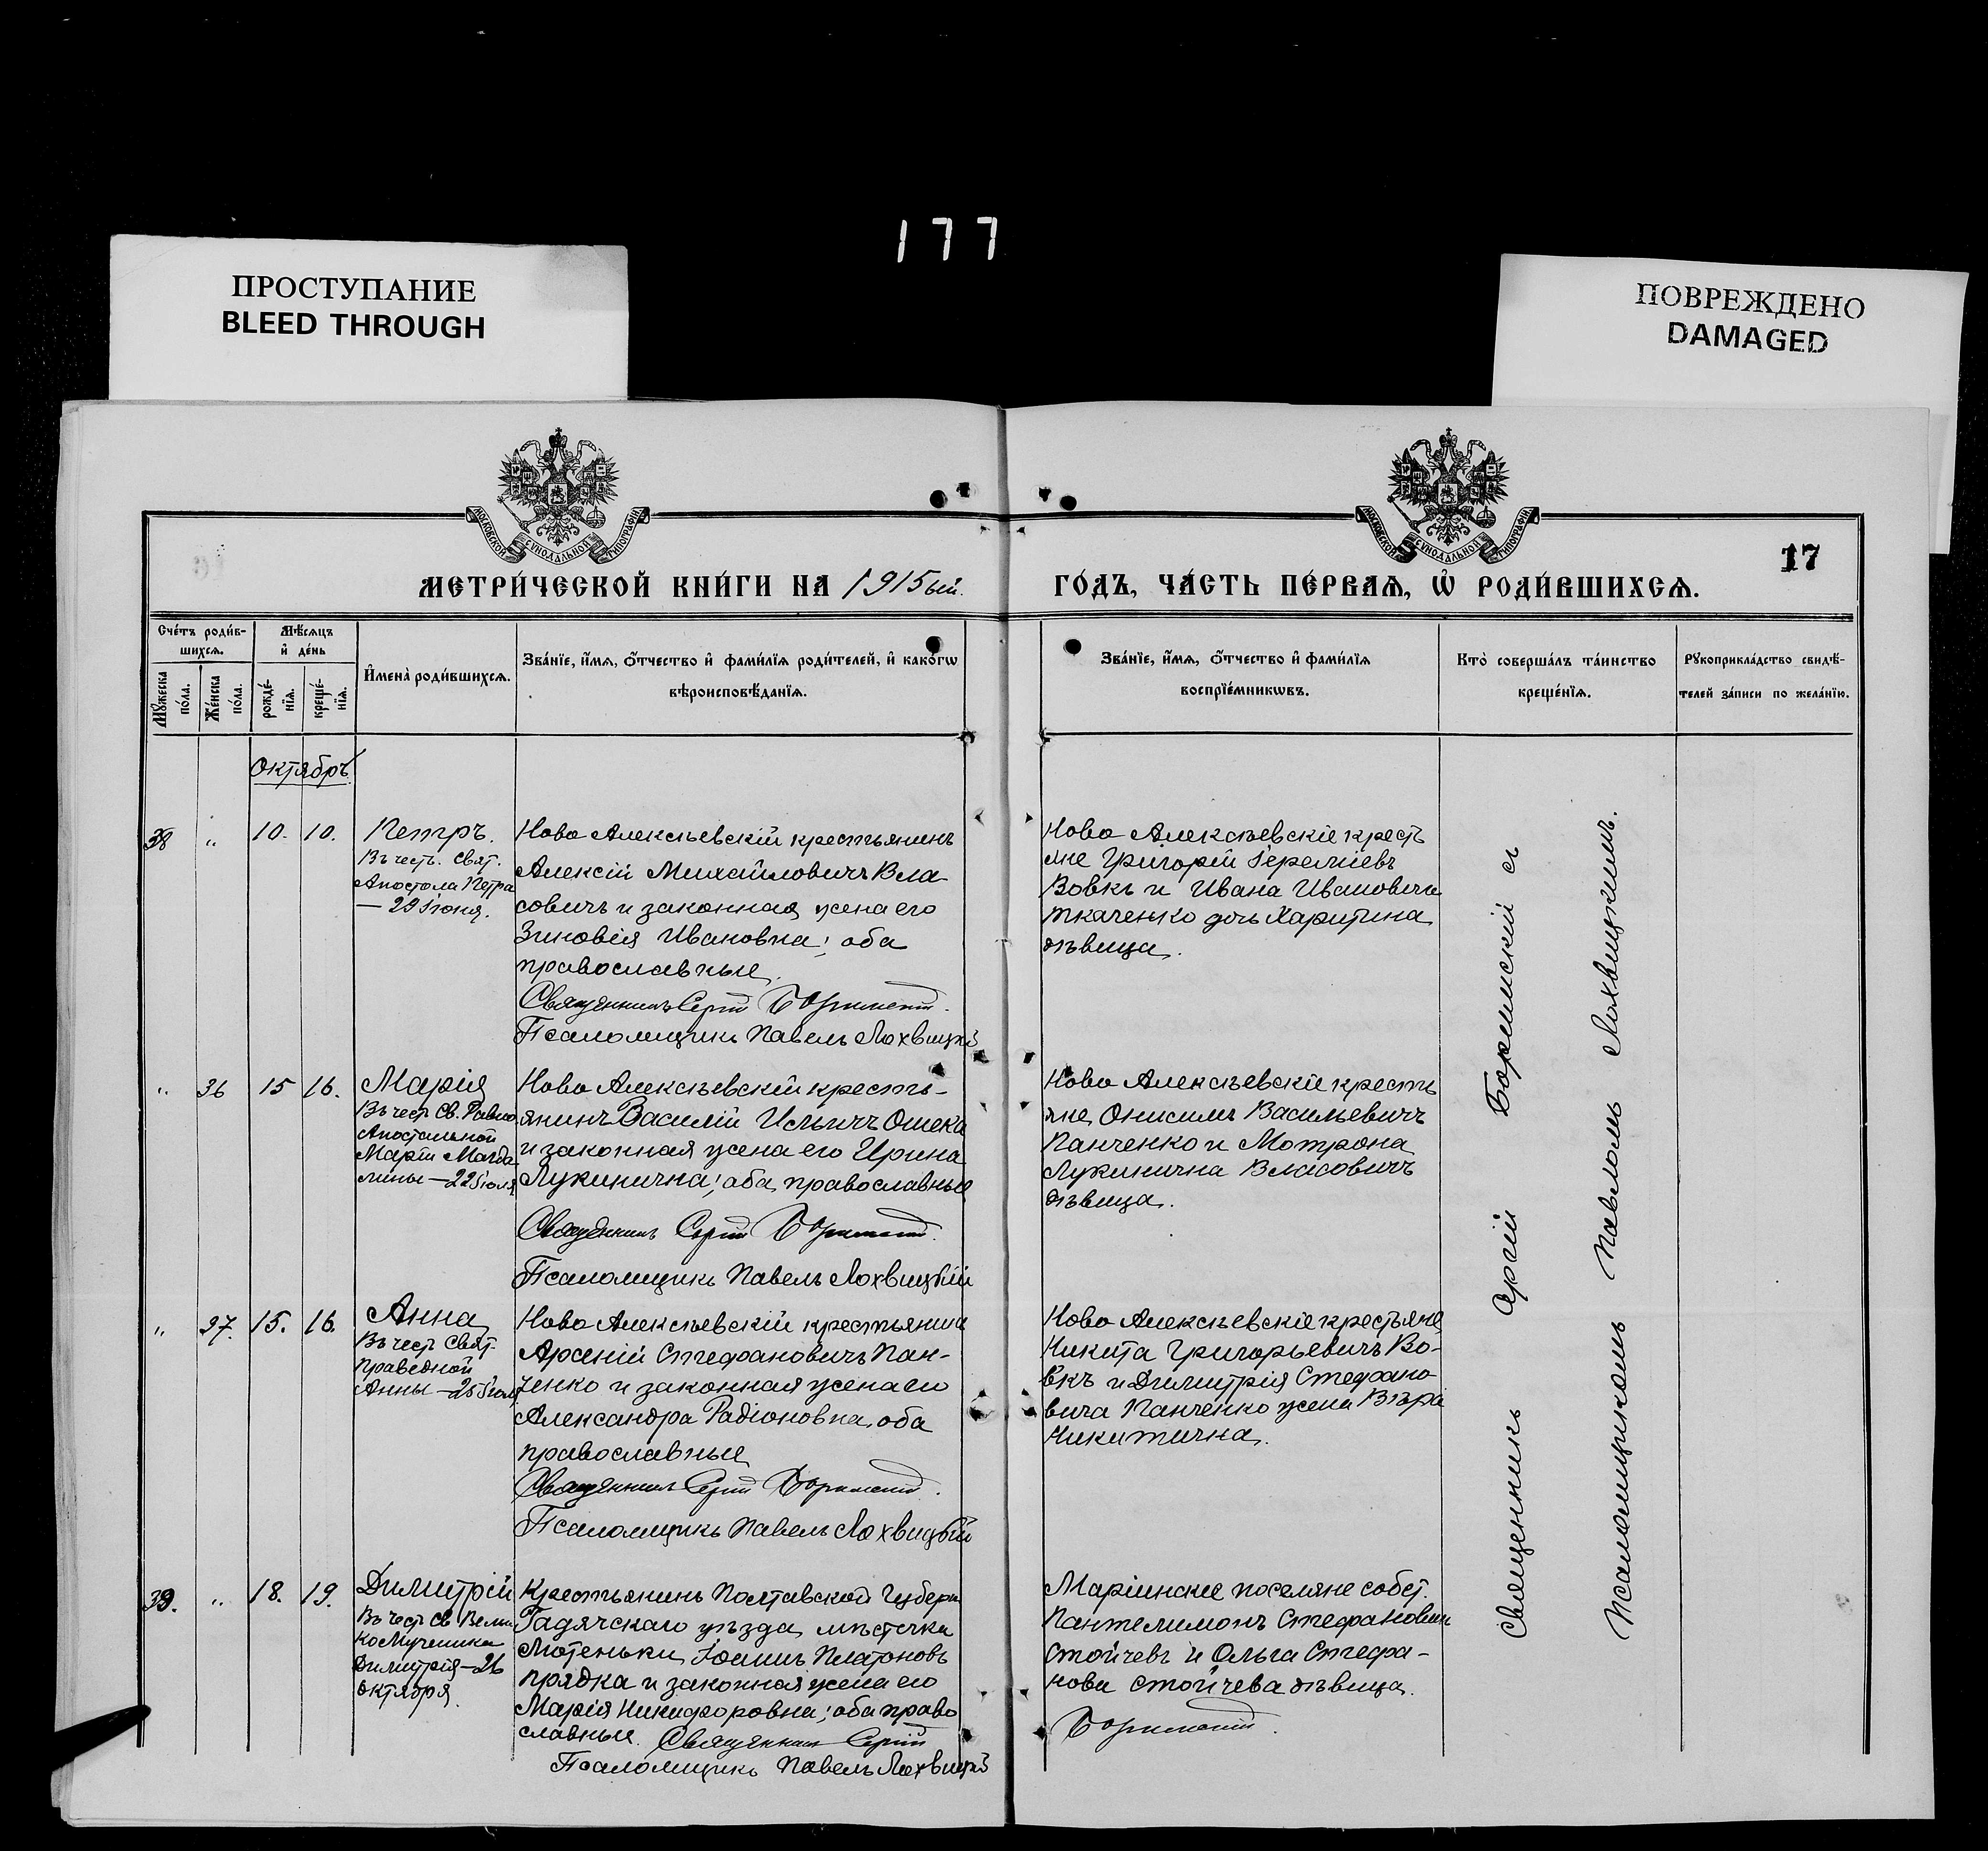 177
ПРОСТУПАНИЕ
BLEED THROUGH
ПОВРЕЖДЕНО
DAMAGED
МОСКОВСКОЙ СѴНОДАЛЬНОЙ ТИПОГРАФІИ
МОСКОВСКОЙ СѴНОДАЛЬНОЙ ТИПОГРАФІИ
17
МЕТРИ́ЧЕСКОЙ КНИ́ГИ НА 1915ый.
ГО́ДЪ, ЧА́СТЬ ПЕ́РВАѦ, Ѡ҆ РОДИ́ВШИХСѦ.
Сче́тъ роди́в-
шихсѧ.
Мꙋ́жеска по́ла.
Же́нска по́ла.
Мѣ́сѧцъ
и҆ де́нь
рожде́-
нїѧ.
креще́-
нїѧ.
И҆мена̀ роди́вшихсѧ.
Зва́нїе, и҆́мѧ, ѻ҆́тчество и҆ фами́лїѧ роди́телей, и҆ како́гѡ
вѣроисповѣ́данїѧ.
Зва́нїе, и҆́мѧ, ѻ҆́тчество и҆ фами́лїѧ
воспрїе́мникѡвъ.
Кто̀ соверша́лъ та́инство
креще́нїѧ.
Рꙋкоприкла́дство свидѣ́-
телей за́писи по жела́нїю.
Октябрь
38 " 10. 10.
Петръ.
Въ честь. Свят.
Апостола Петра
— 29 Іюня.
Ново Алексѣевскій крестьянинъ
Алексій Михайловичъ Вла-
совичъ и законная жена его
Зиновія Ивановна; оба
православные.
Священникъ Сергій Боримскій.
Псаломщикъ Павелъ Лохвицкій
Ново Алексѣевскіе кресть
яне Григорій Іереміевъ
Вовкъ и Ивана Ивановича
Ткаченко дочь Харитина
дѣвица.
" 36 15 16.
Марія
Въ чест Св. Равно
Апостольной
Маріи Магда
лины — 22 Іюля
Ново Алексѣевскій кресть-
янинъ Василій Ильичъ Ошека
и законная жена его Ирина
Лукинична; оба православные
Священникъ Сергій Боримскій.
Псаломщикъ Павелъ Лохвицкій
Ново Алексѣевскіе кресть
яне Онисимъ Васильевичъ
Панченко и Мотрона
Лукинична Власовичъ
дѣвица.
" 37. 15. 16.
Анна
Въ чест Свят.
Праведной
Анны — 25 Іюля
Ново Алексѣевскій крестьянинъ
Арсеній Стефановичъ Пан-
ченко и законная жена его
Александра Радіоновна, оба
православные
Священникъ Сергій Боримскій.
Псаломщикъ Павелъ Лохвицкій
Ново Алексѣевскіе крестьяне
Никита Григорьевичъ Во-
вкъ и Димитрія Стефано-
вича Панченко жена Вѣра
Никитична.
39. " 18. 19.
Димитрій
Въ чест Св Вели
коМученика
Димитрія — 26
октября.
Крестьянинъ Полтавской Губерн
Гадячскаго уѣзда, мѣстечка
Лютеньки, Іоаннъ Платоновъ
Прядка и законная жена его
Марія Никифоровна; оба право
славные. Священникъ Сергій
Псаломщикъ Павелъ Лохвицкій
Маріинскіе поселяне собст.
Пантелимонъ Стефановичъ
Стойчевъ и Ольга Стефа-
нова Стойчева дѣвица.
Боримскій.
Священникъ Сергій Боримскій съ
Псаломщикомъ Павломъ Лохвицкимъ.